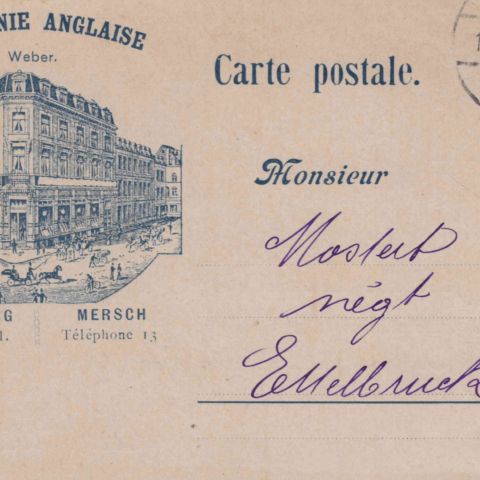 NIE ANGLAISE
Weber.
Carte postale.
Monsieur
Mostert
négt
Ettelbruck
G MERSCH
1. Téléphone 13
1